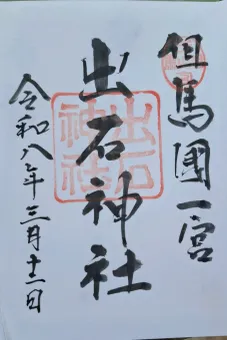 但馬國一宮
出石神社
出石神社
令和八年三月十二日